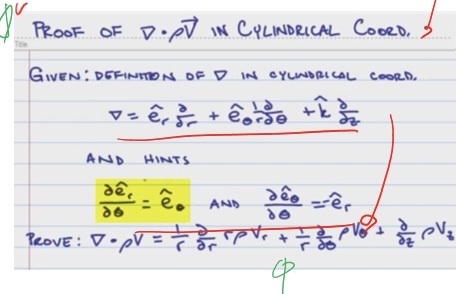 PROOF OF ∇·ρV⃗ IN CYLINDRICAL COORD.
Title
GIVEN: DEFINITION OF ∇ IN CYLINDRICAL COORD.
∇ = ê_r ∂/∂r + ê_θ 1/r ∂/∂θ + k̂ ∂/∂z
AND HINTS
∂ê_r/∂θ = ê_θ AND ∂ê_θ/∂θ = -ê_r
PROVE: ∇·ρV = 1/r ∂/∂r rρV_r + 1/r ∂/∂θ ρV_θ + ∂/∂z ρV_z
φ